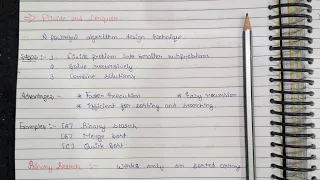 ⇒ Divide and Conquer
- A powerful algorithm design technique.
Steps: 1 Divide problem into smaller subproblems
2 Solve recursively
3 Combine solutions
Advantages * Faster execution * Easy recursion
* Efficient for sorting and searching
Examples: (A) Binary Search
(B) Merge Sort
(C) Quick Sort
Binary Search :- Works only on sorted array